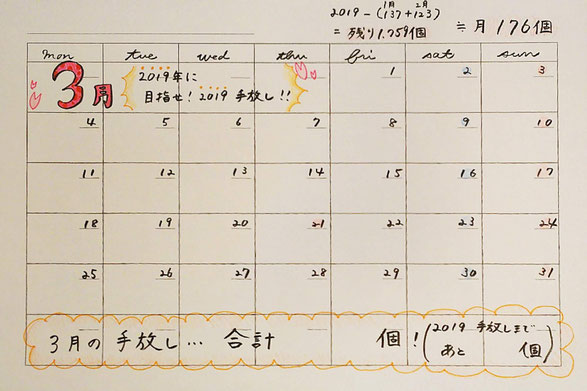 1月 2月
2019-(137+123)
=残り1.759個 ≒月176個
mon tue wed thu fri sat sun
3月 2019年に 1 2 3
目指せ!2019手放し!!
4 5 6 7 8 9 10
11 12 13 14 15 16 17
18 19 20 21 22 23 24
25 26 27 28 29 30 31
3月の手放し… 合計 個!(2019手放しまで
あと 個)